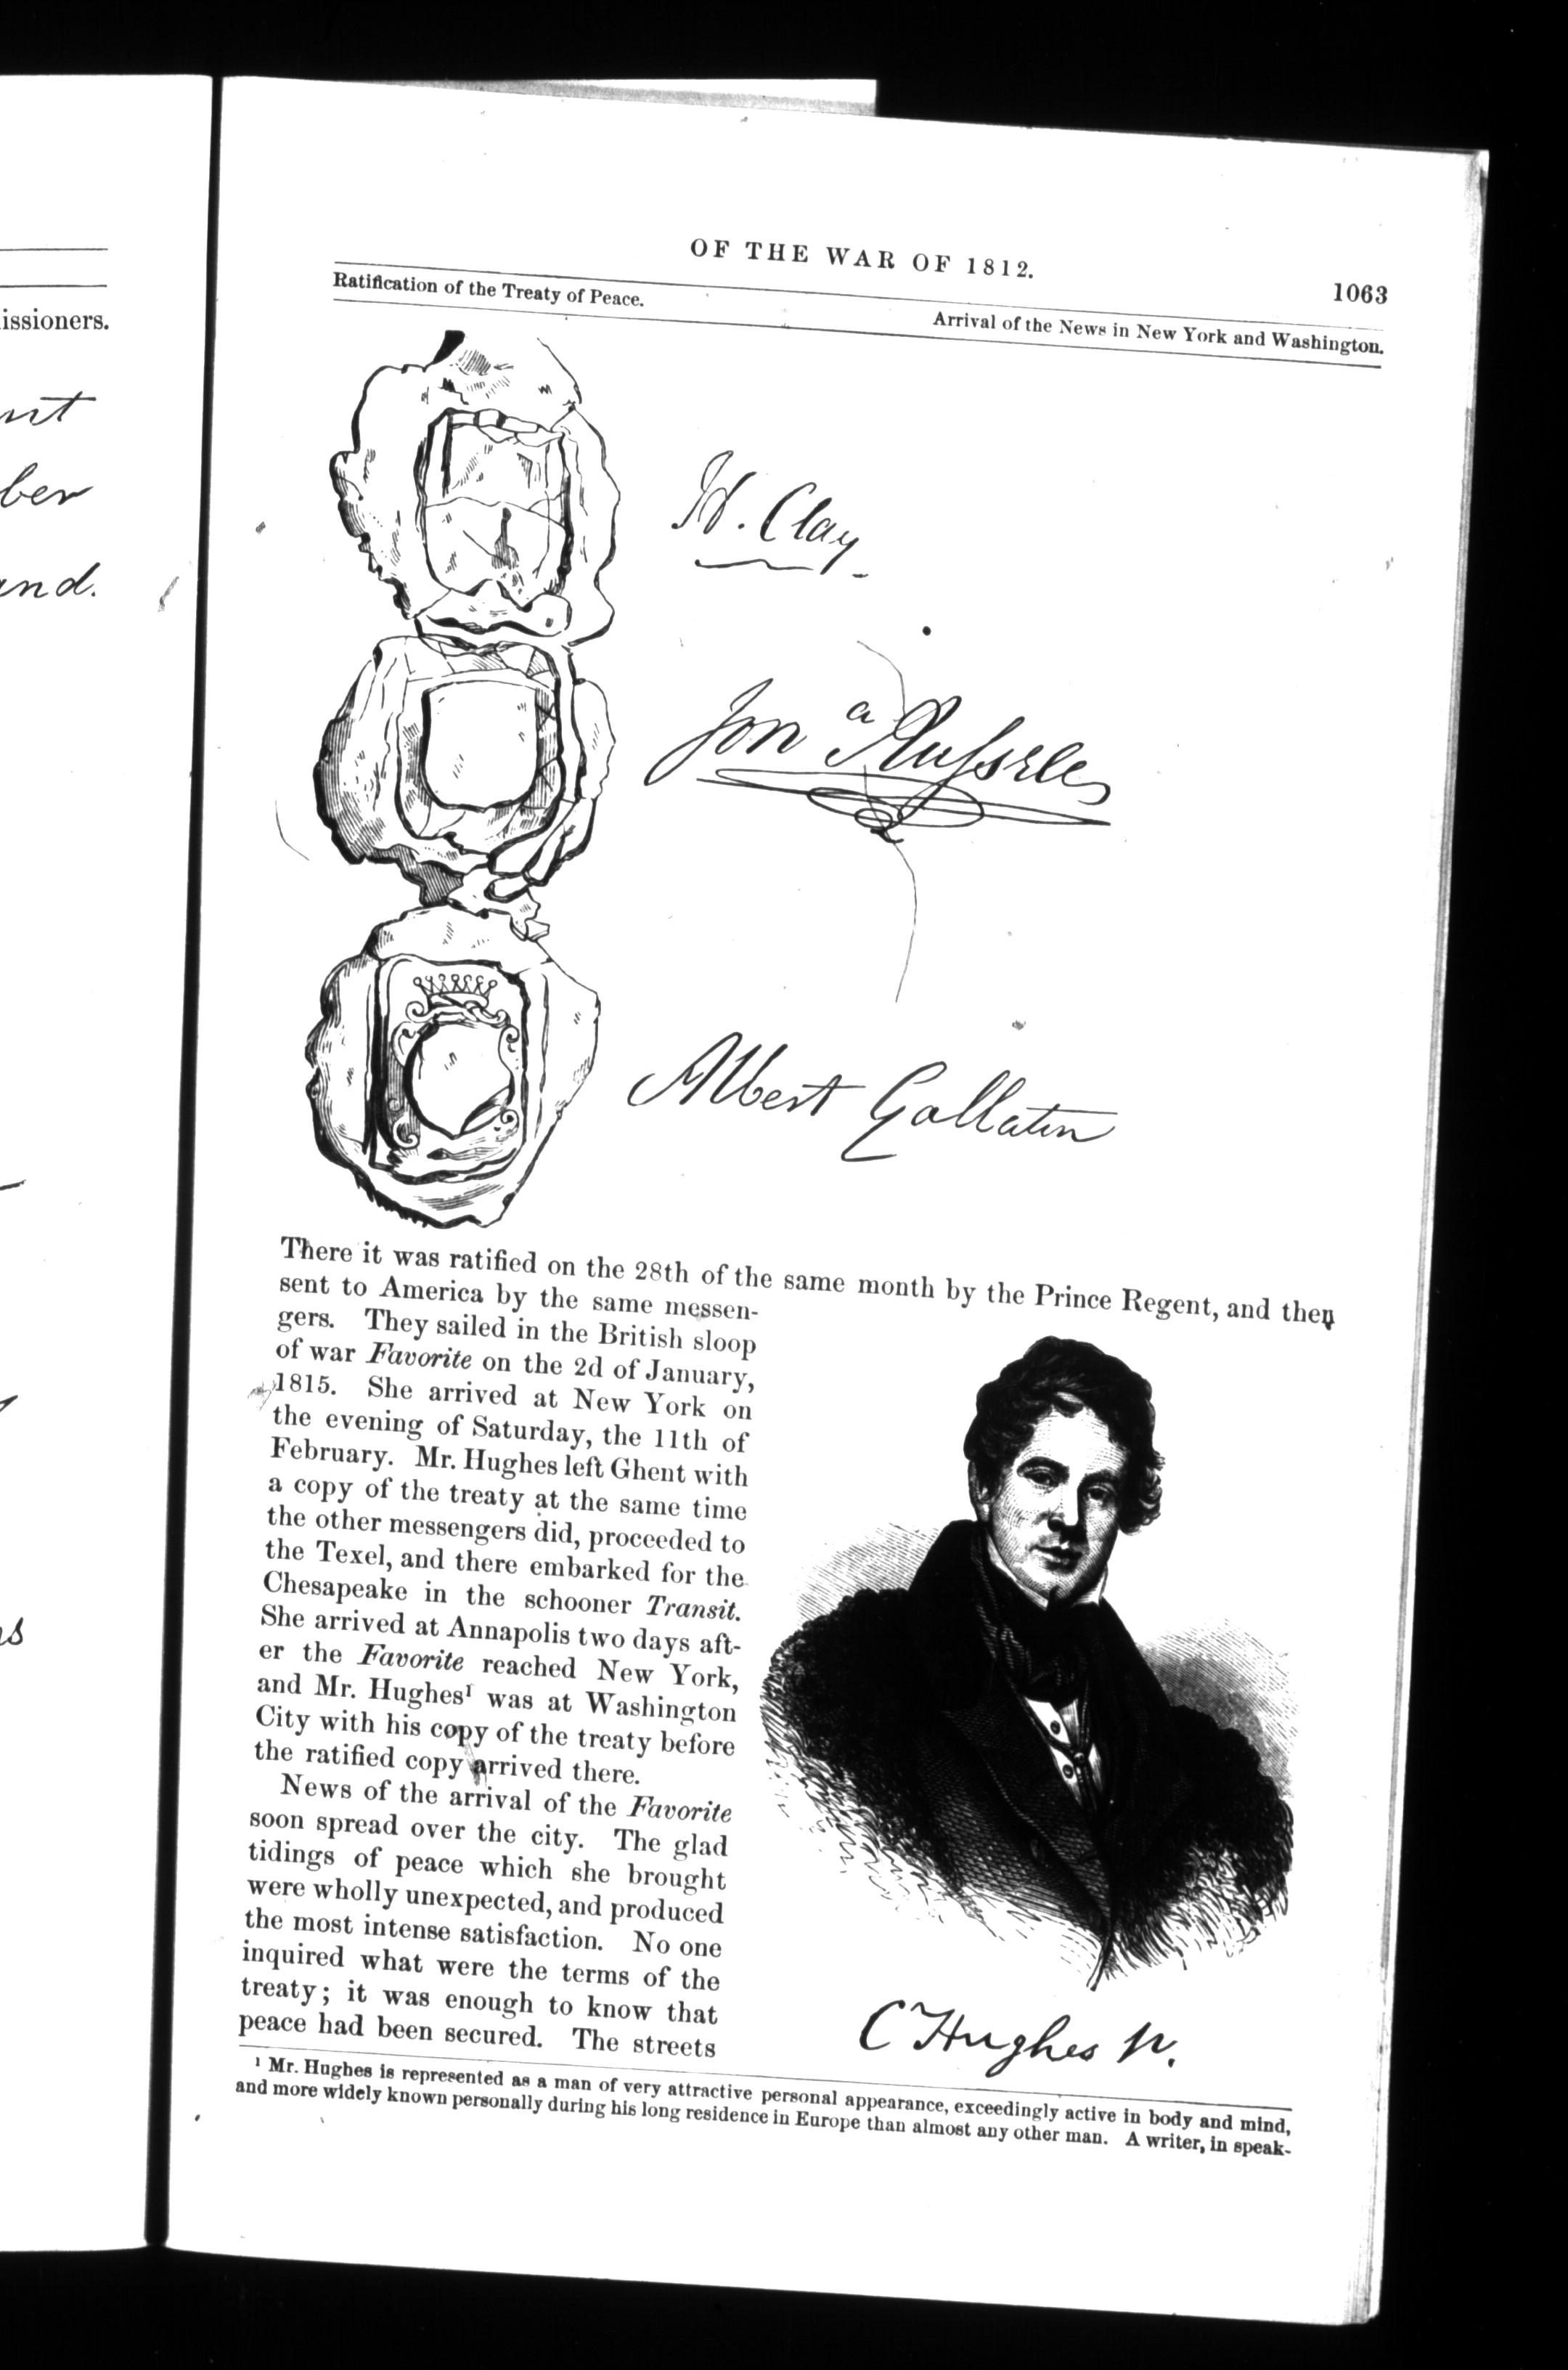 issioners.
nt
ber
and.
OF THE WAR OF 1812.
1063
Ratification of the Treaty of Peace.
Arrival of the News in New York and Washington.
H. Clay
Jon a Russell
Albert Gallatin
There it was ratified on the 28th of the same month by the Prince Regent, and then
sent to America by the same messen-
gers. They sailed in the British sloop
of war Favorite on the 2d of January,
1815. She arrived at New York on
the evening of Saturday, the 11th of
February. Mr. Hughes left Ghent with
a copy of the treaty at the same time
the other messengers did, proceeded to
the Texel, and there embarked for the
Chesapeake in the schooner Transit.
She arrived at Annapolis two days aft-
er the Favorite reached New York,
and Mr. Hughes¹ was at Washington
City with his copy of the treaty before
the ratified copy arrived there.
News of the arrival of the Favorite
soon spread over the city. The glad
tidings of peace which she brought
were wholly unexpected, and produced
the most intense satisfaction. No one
inquired what were the terms of the
treaty; it was enough to know that
peace had been secured. The streets
C Hughes Jr.
¹ Mr. Hughes is represented as a man of very attractive personal appearance, exceedingly active in body and mind,
and more widely known personally during his long residence in Europe than almost any other man. A writer, in speak-